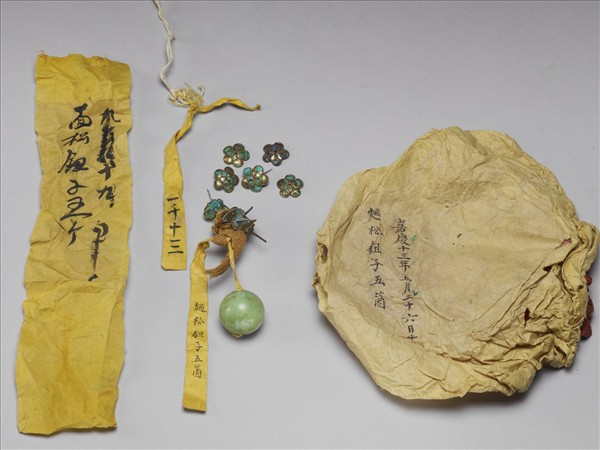 面松鈕子五个
一千十三
麵松鈕子五箇
嘉慶十三年五月二十六日
麵松鈕子五箇